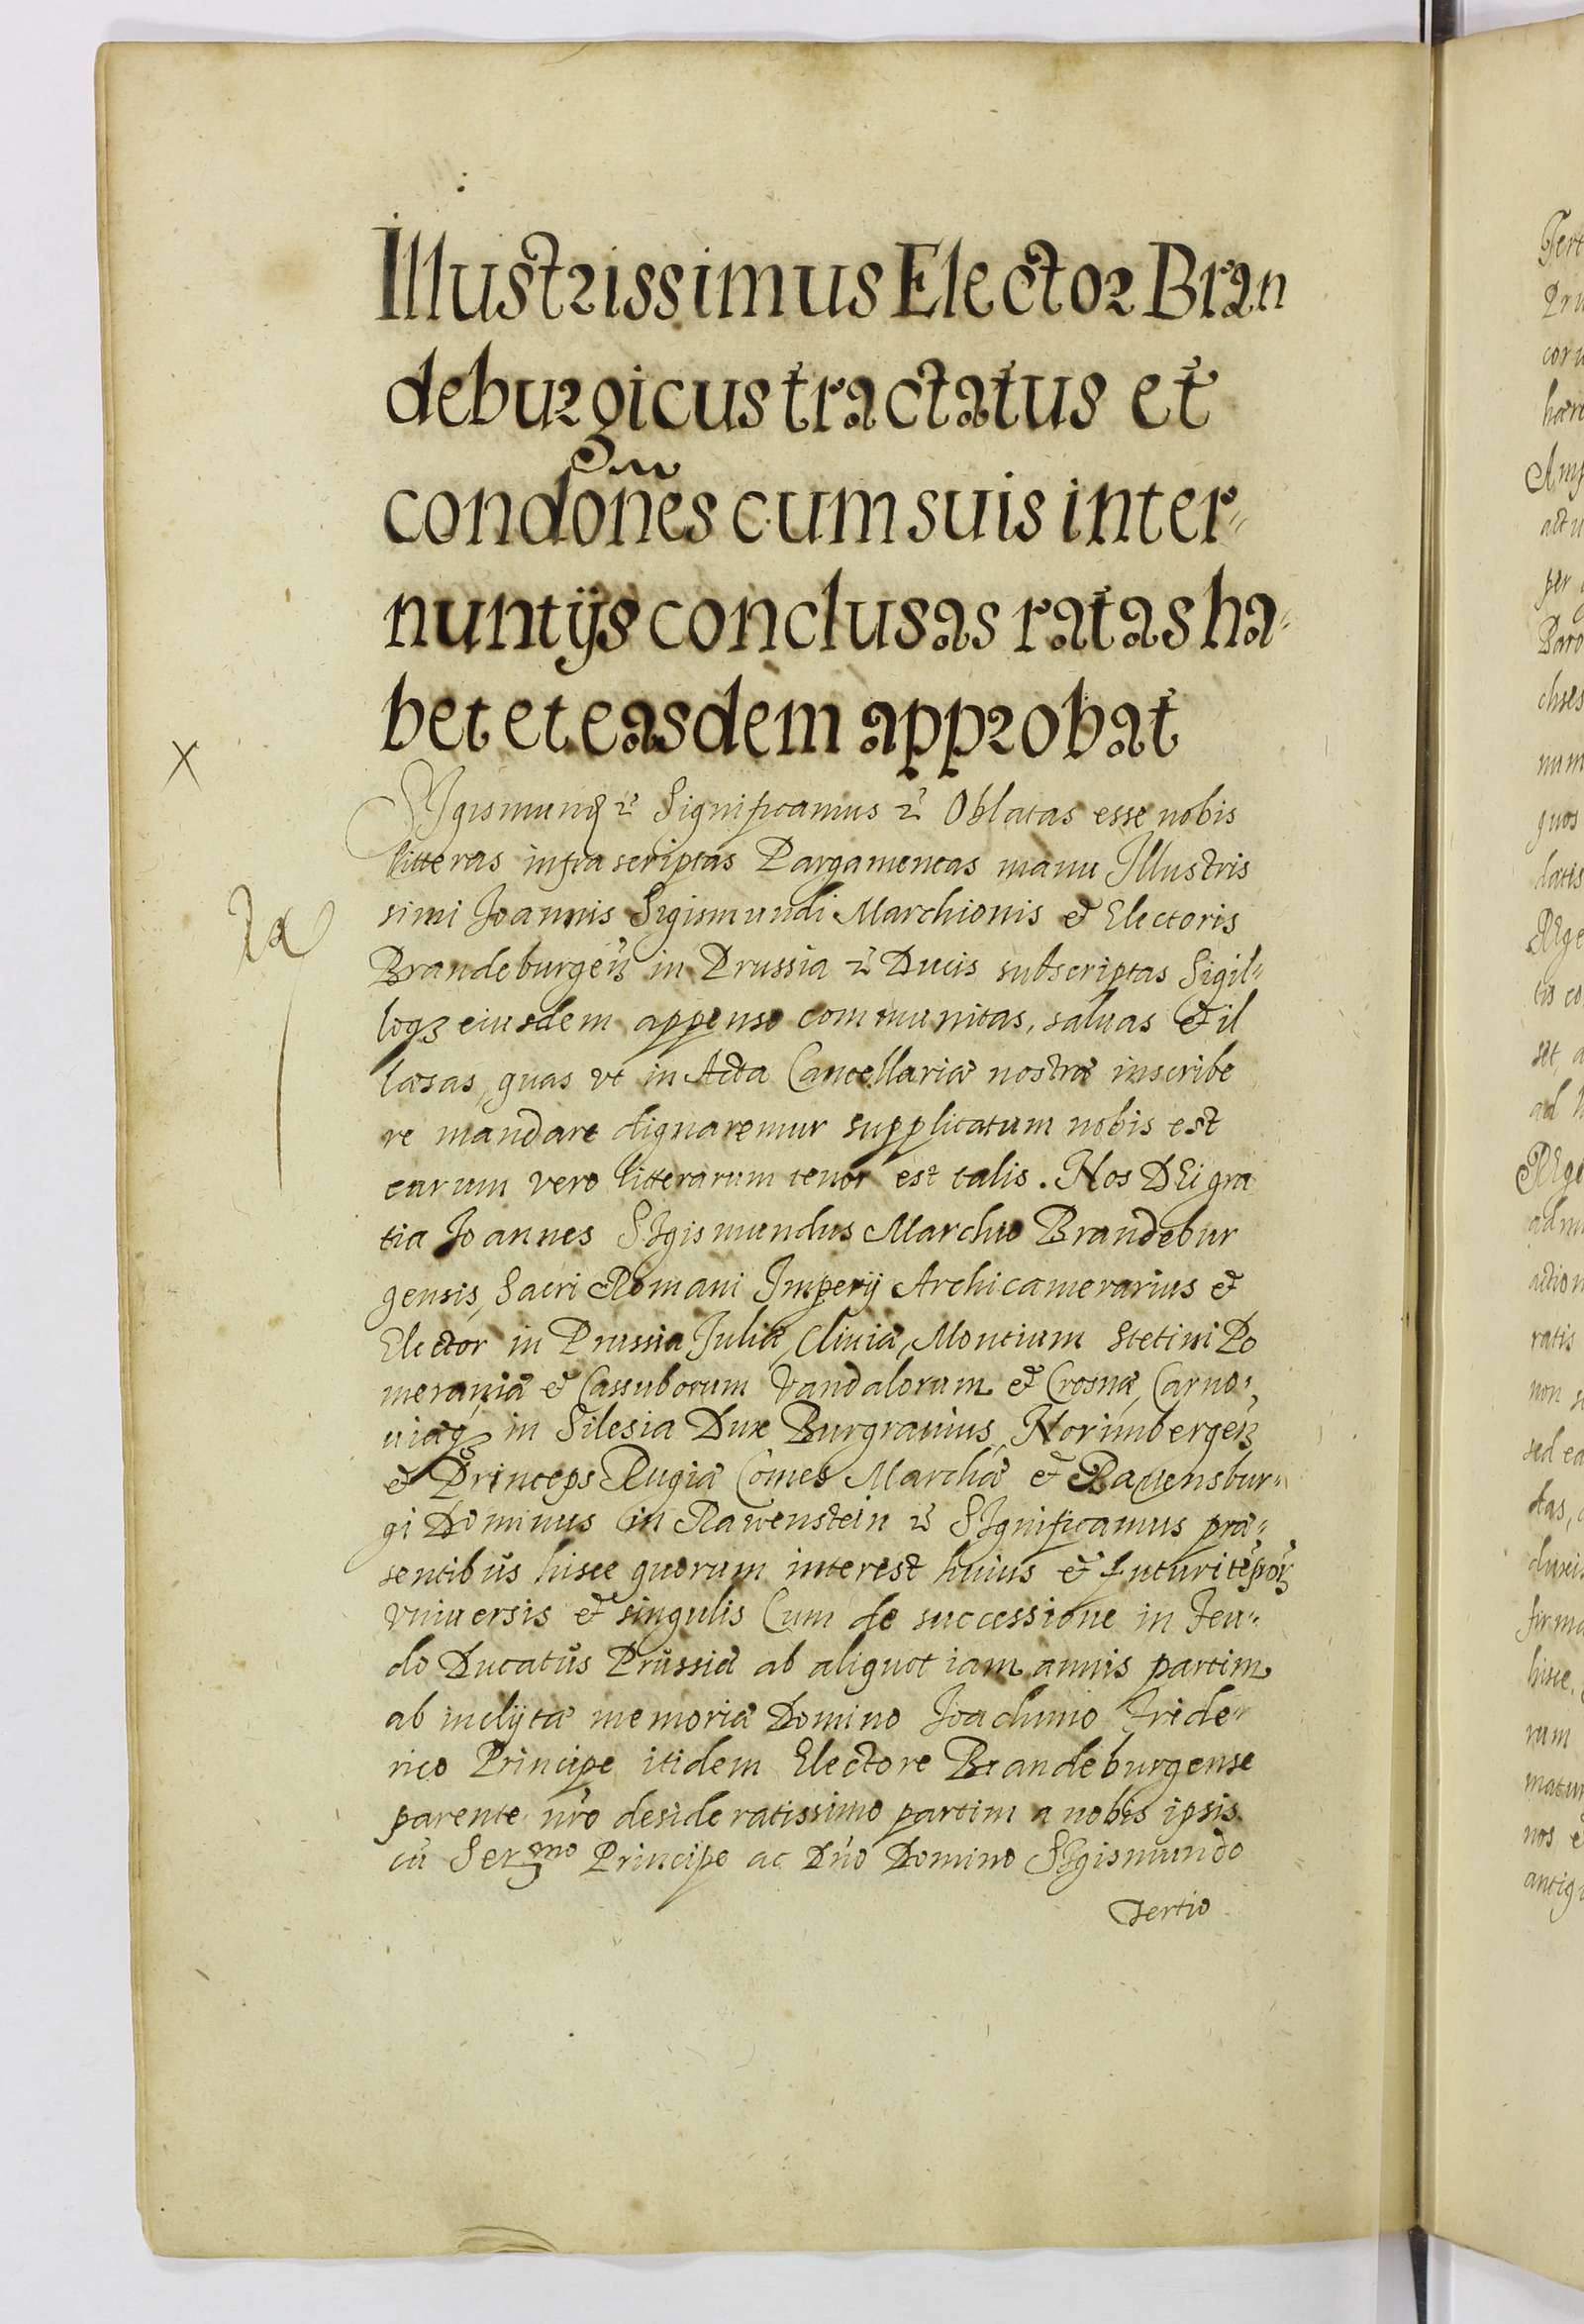 Illustrissimus Elector Bran
deburgicus tractatus et
condoñes cum suis inter=
nuntijs conclusas ratas ha=
bet et easdem approbat
X
SIgismund9 etc Significamus etc Oblatas esse nobis
litteras infra scriptas Pargameneas manu Illustris
simi Joannis Sigismundi Marchionis et Electoris
Brandeburgeñ in Prussia etc Ducis subscriptas Sigil=
loq3 eiusdem appenso communitas, saluas et il
læsas, quas vt in Acta Cancellariæ nostræ inscribe
re mandare dignaremur supplicatum nobis est
earum vero litterarum tenor est talis. Nos DEi gra
tia Joannes SIgismundus Marchio Brandebur
gensis, Sacri Romani Imperij Archicamerarius et
Elector in Prussia Juliæ, Cliuiæ, Montium Stetini Po
meraniæ et Cassuborum Vandalorum et Crosnæ, Carno=
uiæq3 in Silesia Dux Burgrauius Norimbergeñ
et Princeps Rugiæ Comes Marchæ et Rauensbur=
gi Dominus in Rawenstein etc SIgnificamus præ=
sentibus hisce quorum interest huius et futuri tempor
vniuersis et singulis Cum de successione in feu=
do Ducatus Prussiæ ab aliquot iam annis partim
ab inclijtæ memoriæ Domino Joachimo Fride=
rico Principe itidem Electore Brandeburgense
parente nr̃o desideratissimo partim a nobis ipsis
cũ Ser^mo Principe ac Dño Domino SIgismundo
Tertio